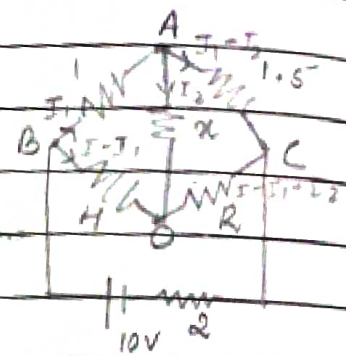 A
I₁-I₂
1
1.5
I₁
I₂
x
B
I-I₁
C
4
R
I-I₁+I₂
O
10V
2